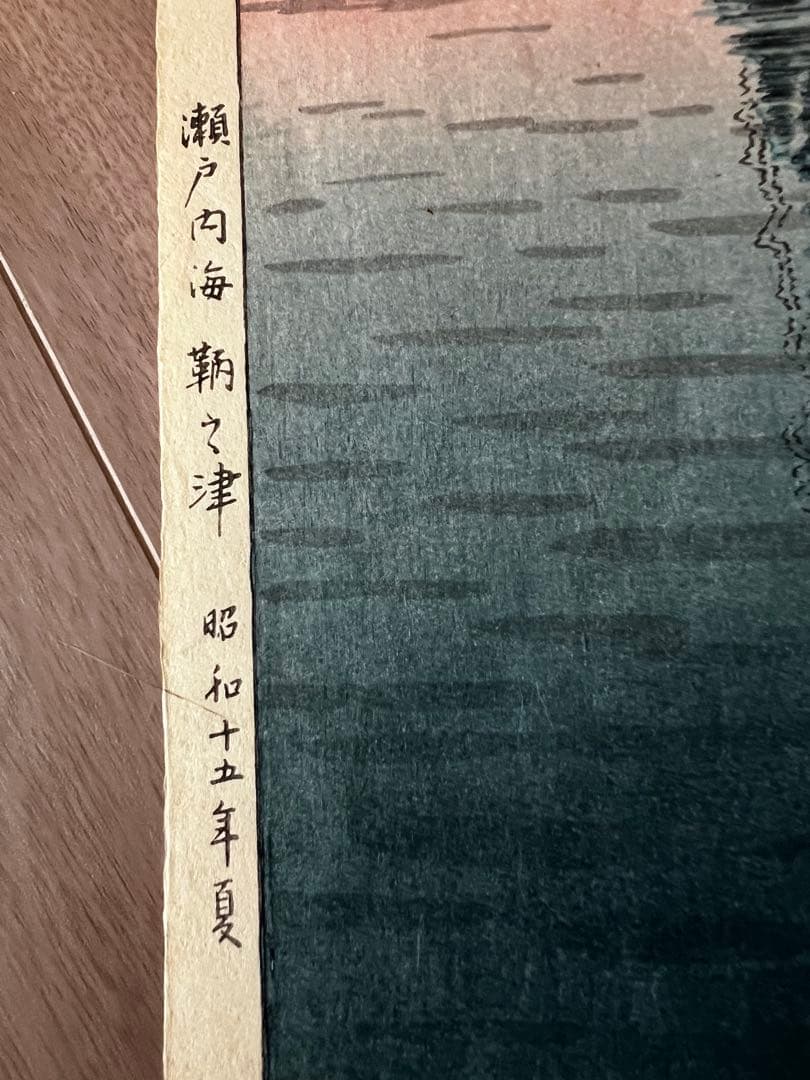 瀬戸内海 鞆之津 昭和十五年夏